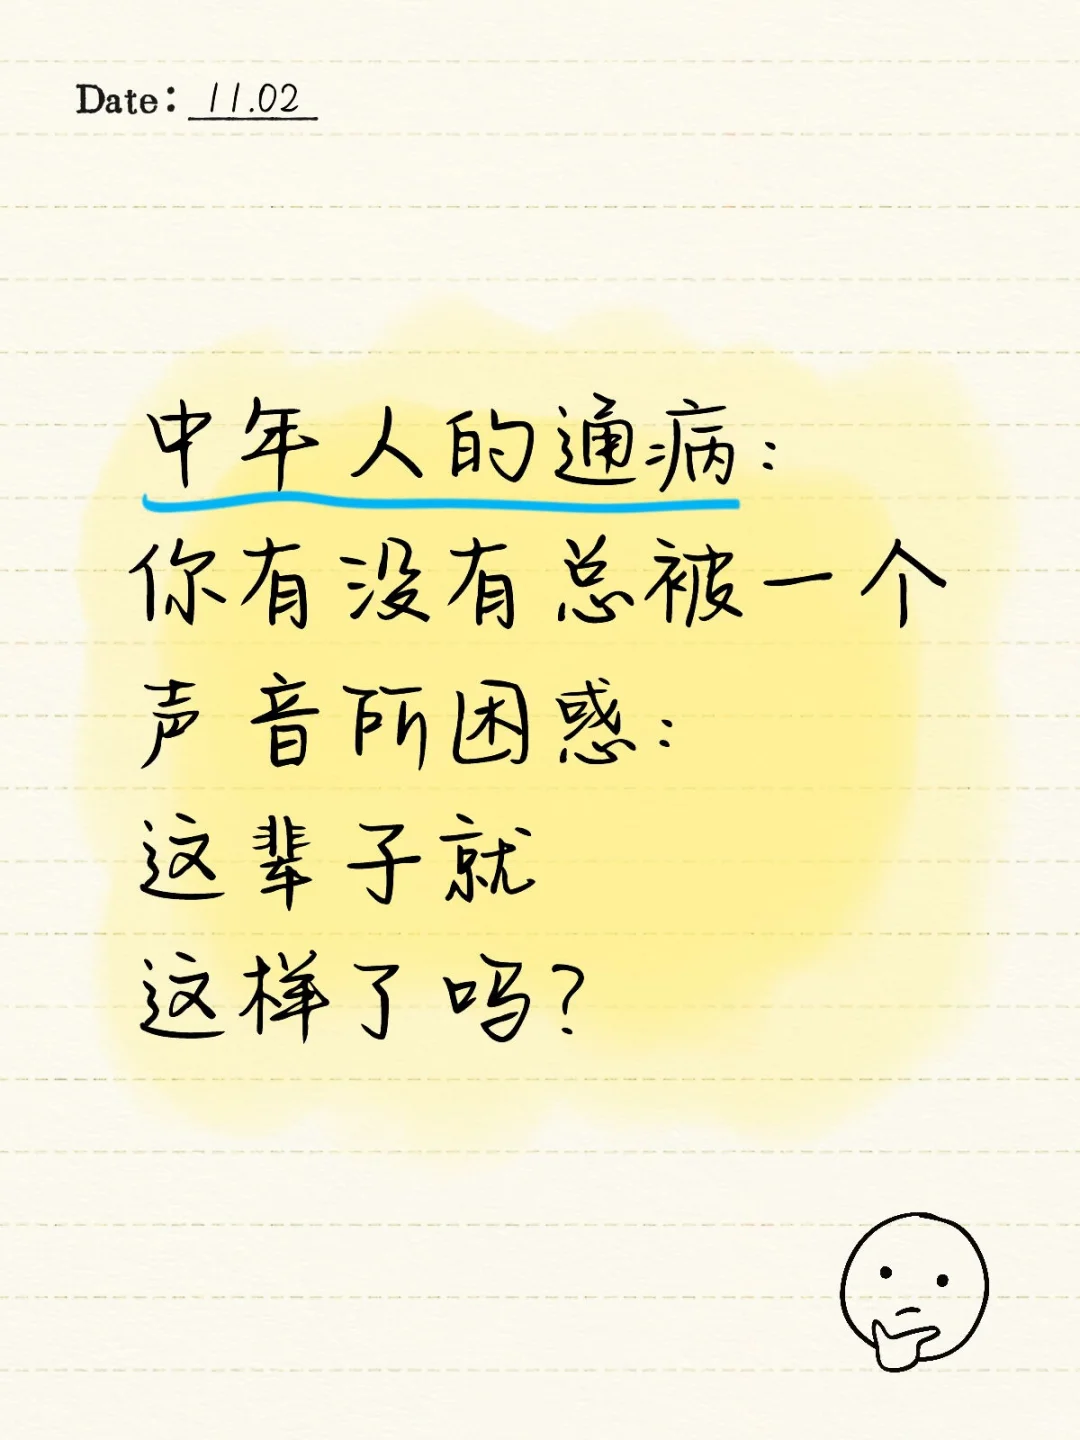 Date: 11.02
中年人的通病:
你有没有总被一个
声音所困惑:
这辈子就
这样了吗?